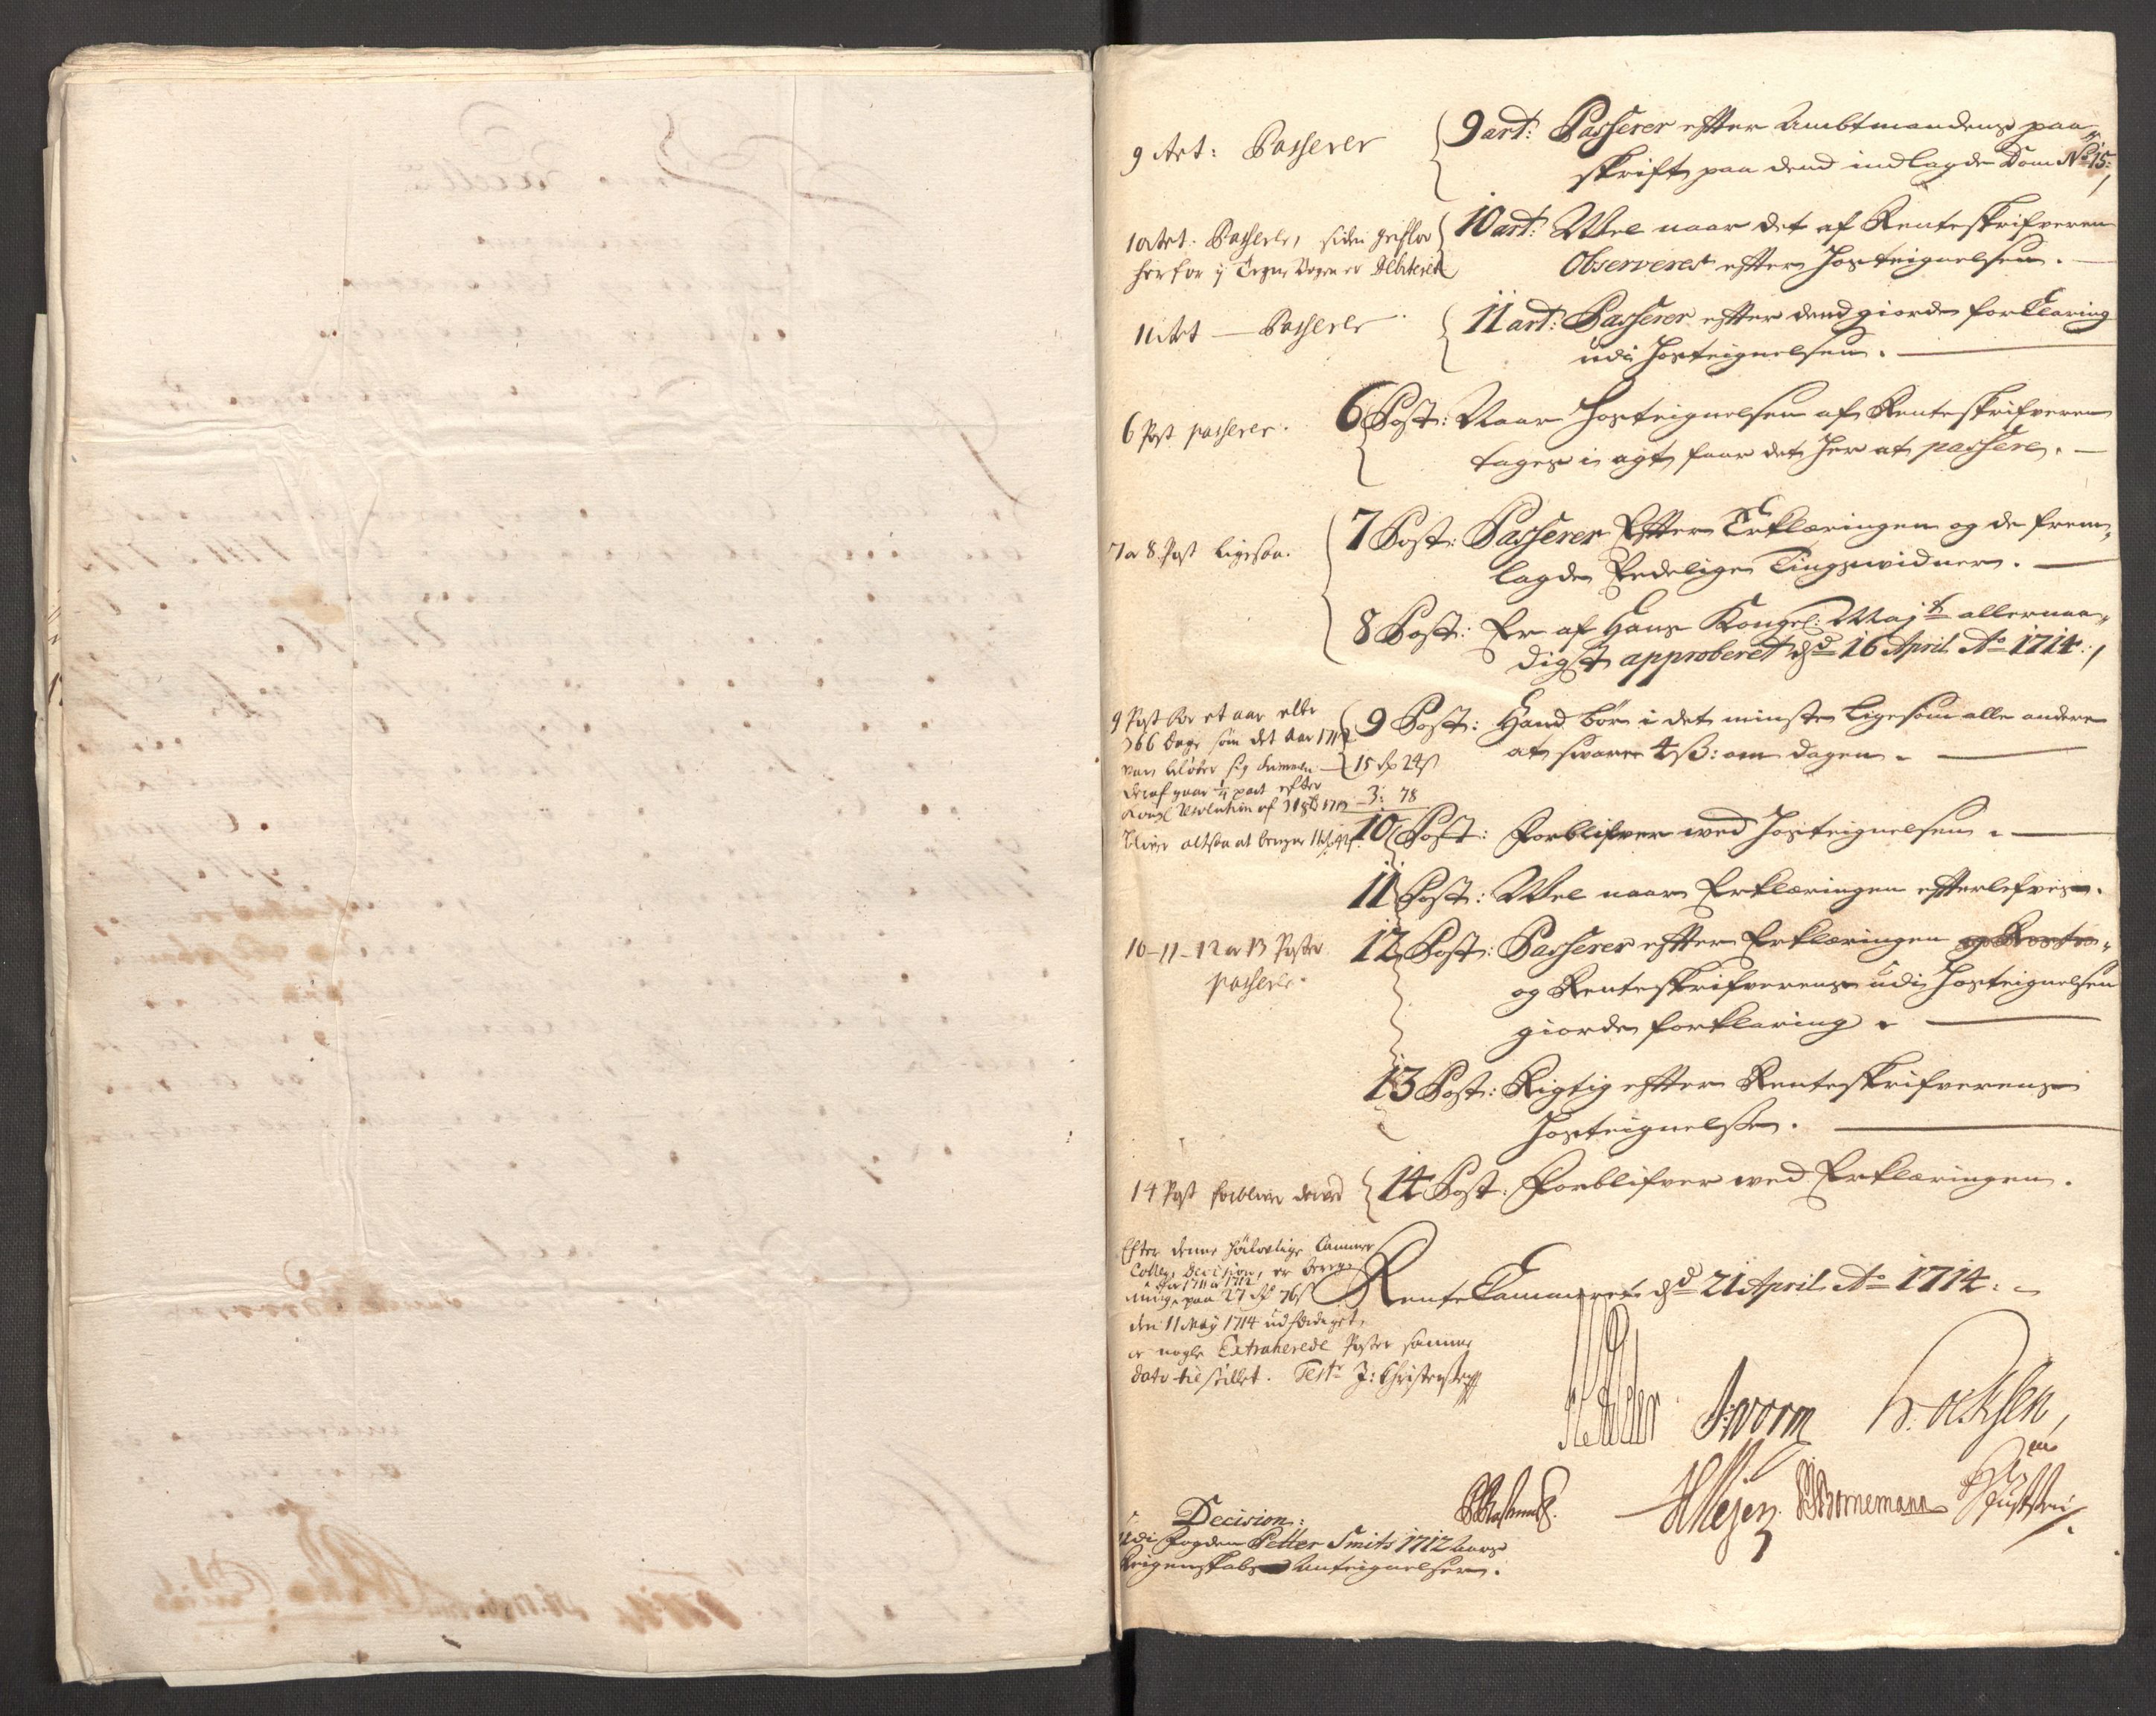 9 Art: Passerer
9 art: Passerer efter Ambtmandens paa„
skrift paa dend indlagde Dom No 15:/
10 Art. Passerer, siden
herfor i Tegne Bogen er Debiteret
10 art: Wel naar det af Renteskrifveren
Observerest efter Hosteignelsen.
11 Art — Passerer
11 art: Passerer efter dend giorde forklaring
udi Hosteignelsen.
6 Post passerer.
6 Post: Naar Hosteignelsen af Renteskrifveren
tages i agt, faar det Her at passere.
7 og 8. Post ligesaa.
7 Post: Passerer Efter Erklæringen og de frem„
lagde Edelige Tingswidner.
8 Post: Er af Hans Kongel: Mayts allernaa„
digst approberet dend 16 April Ao 1714:/
9 Post for et aar eller
366 dage som det Aar 1712
var beløber sig Summen — 15 rdr 24 s
deraf gaar 1/4 part efter
Kongl Resolution af 1713 — 3: 78
bliver altsaa at beregne 11 rdr 42 s.
9 Post: Hand bør i det minste ligesom alle andre
at sware 4 ß: om dagen.
10 Post: Forblifver wed Hosteignelsen.
11 Post: Wel naar Erklæringen efterlefvis.
10-11-12 og 13 Poster
passerer.
12 Post: Passerer efter Erklæringen og Rente„
og Renteskrifverens udi Hosteignelsen
giorde forklaring.
13 Post: Rigtig efter Renteskrifverens
Hosteignelse.
14 Post forbliver derved
14 Post: Forblifver wed Erklæringen.
Efter denne Høilovlige Cammer
Colleg. Decision, er bereg„
for 1711 og 1712
ning paa 27 rdr 76 s
den 11 May 1714 udfærdiget,
og nogle Extraherede Poster samme
dato tilstillet. Test: J: Christensen
Rente Cammeret dend 21 April Ao 1714.
J: Worm
H Mejer
Bornemann
Decision:
Udi Fogden Petter Smits 1712 Aars
Reigenskabs Anteignelser.